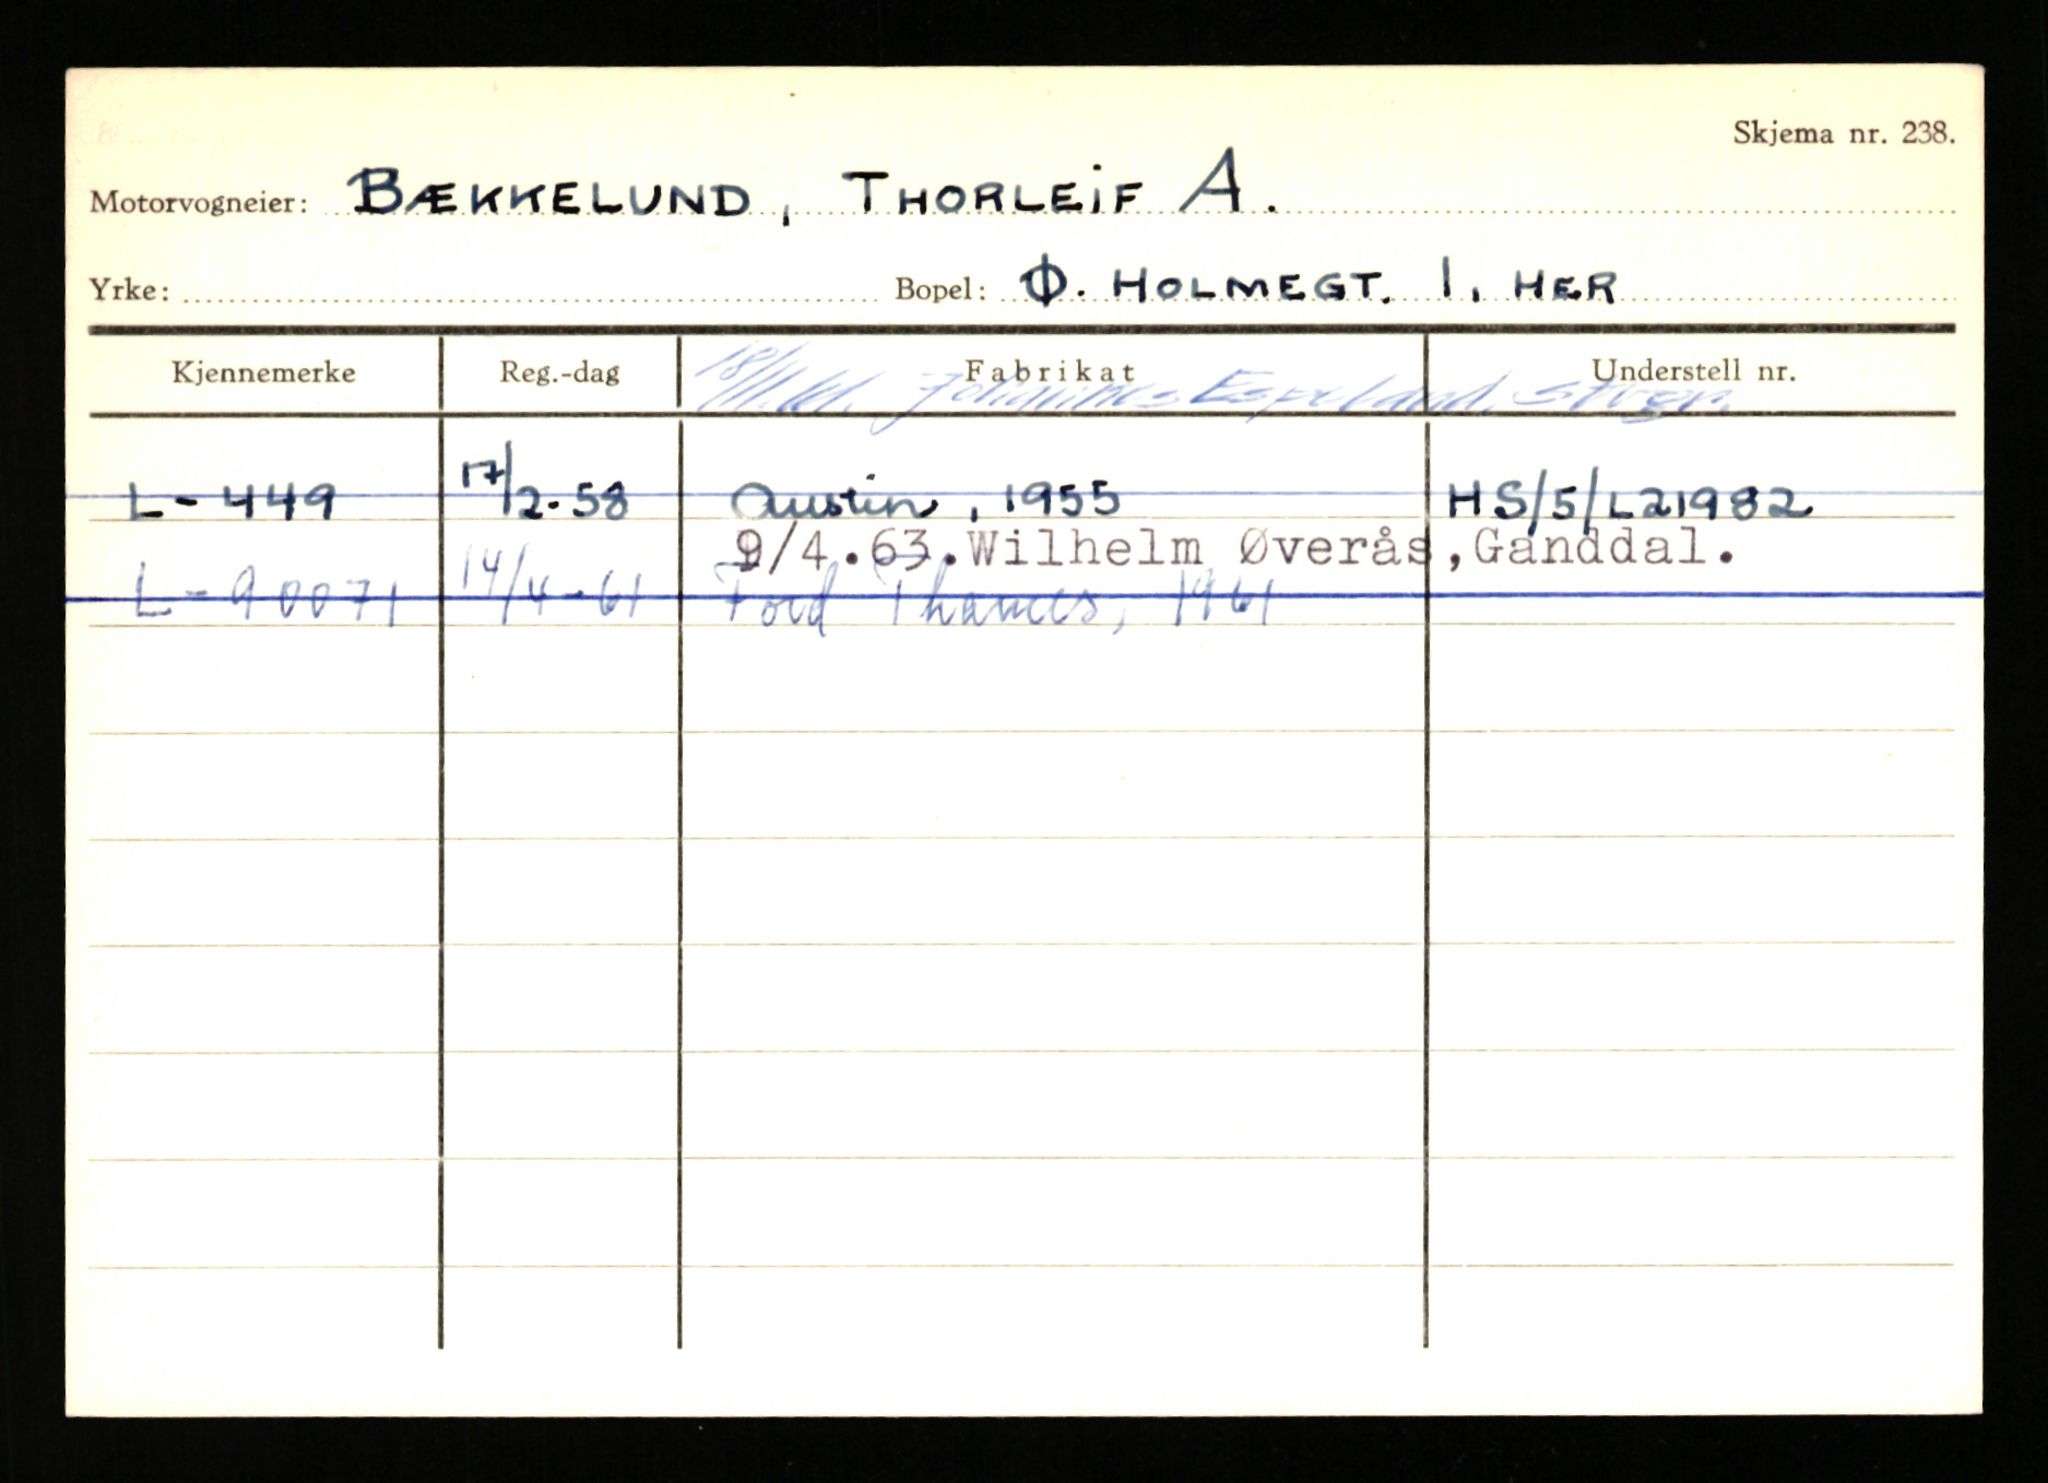 Skjema nr. 238.
Motorvogneier: BÆKKELUND, THORLEIF A.
Yrke: Bopel: Ø. HOLMEGT. 1, HER
Kjennemerke Reg.-dag Fabrikat Understell nr.
18/11.61. Johannes Espeland, Stvgr.
L-449 17/2-58 Austin, 1955 HS/5/L21982
9/4.63.Wilhelm Øverås,Ganddal.
L-90071 14/4-61 Ford Thames, 1961